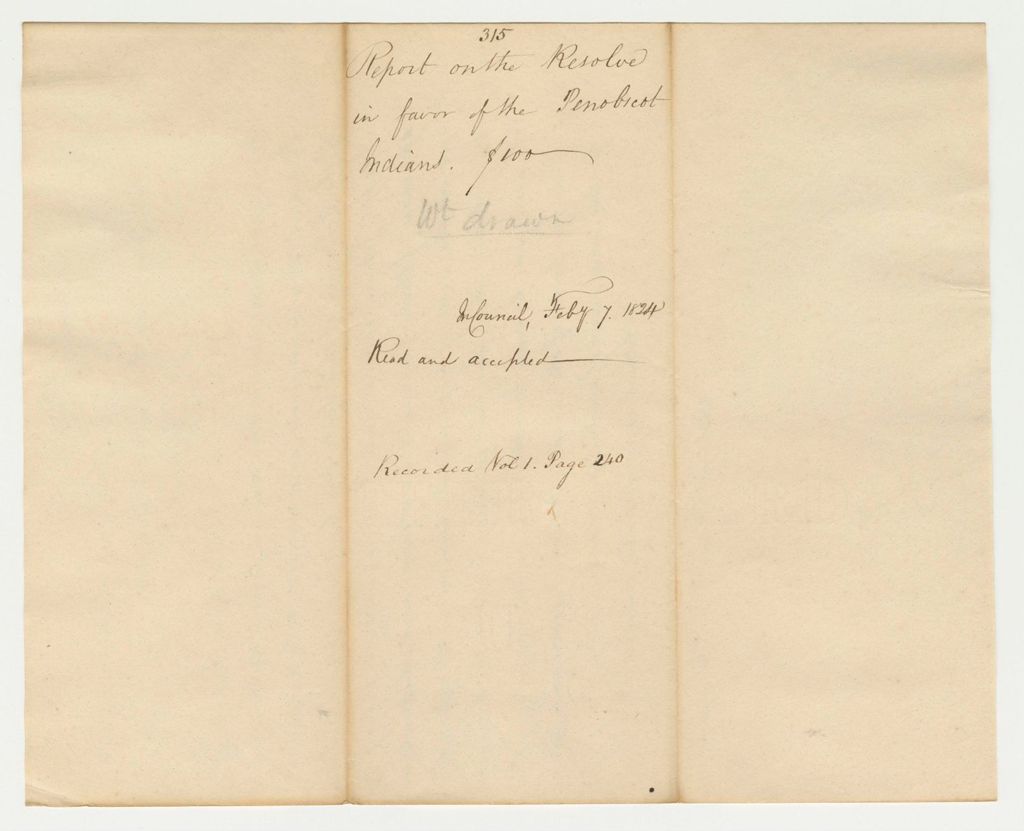 315
Report on the Resolve
in favor of the Penobscot
Indians. $100
Wt drawn
In Council, Feby 7. 1824
Read and accepted
Recorded Vol 1. Page 240